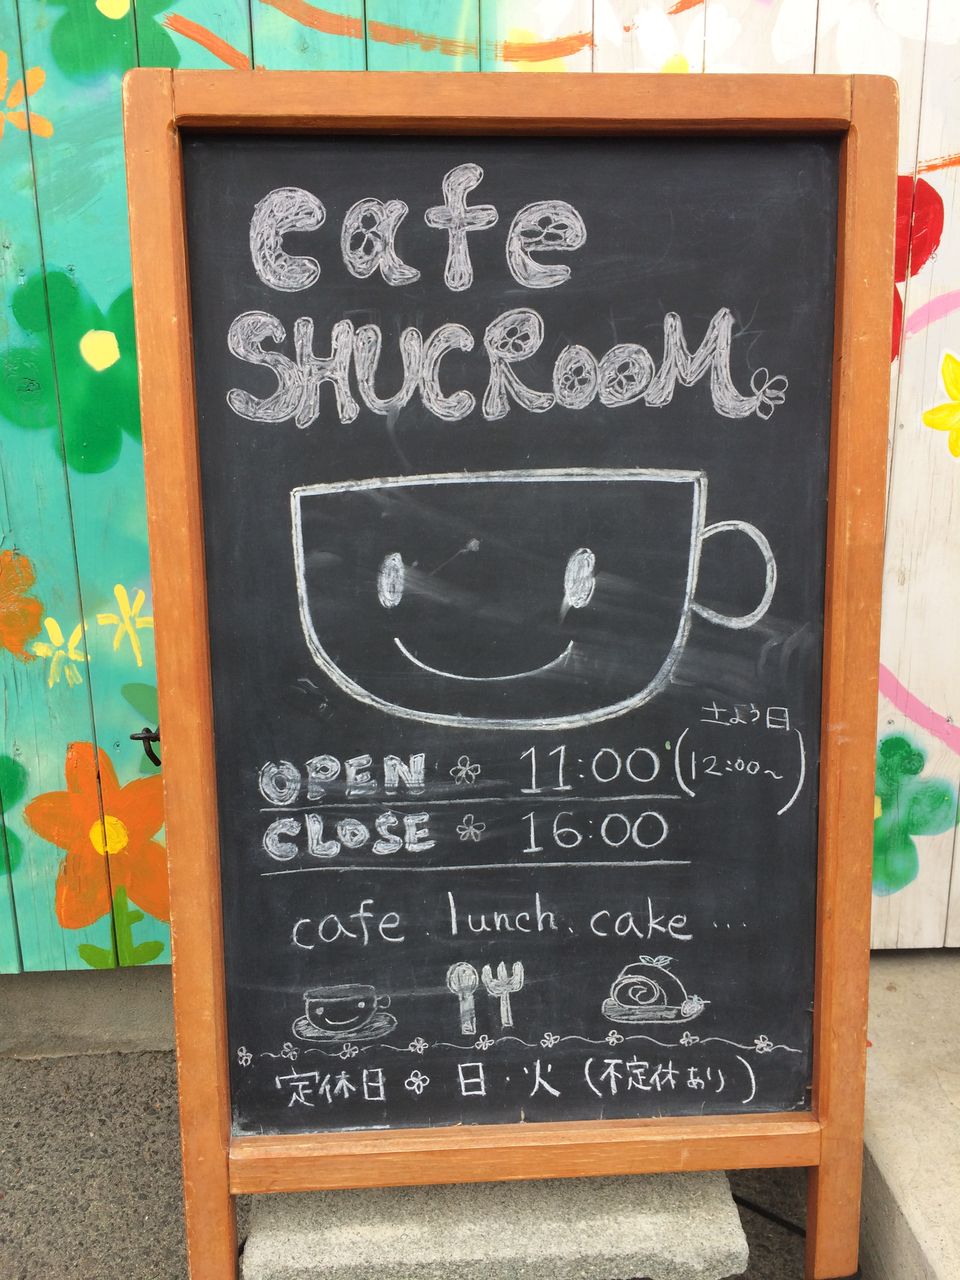 cafe
SHUCRooM
土よう日
OPEN 11:00 (12:00~)
CLOSE 16:00
cafe . lunch. cake ...
定休日 日・火 (不定休あり)